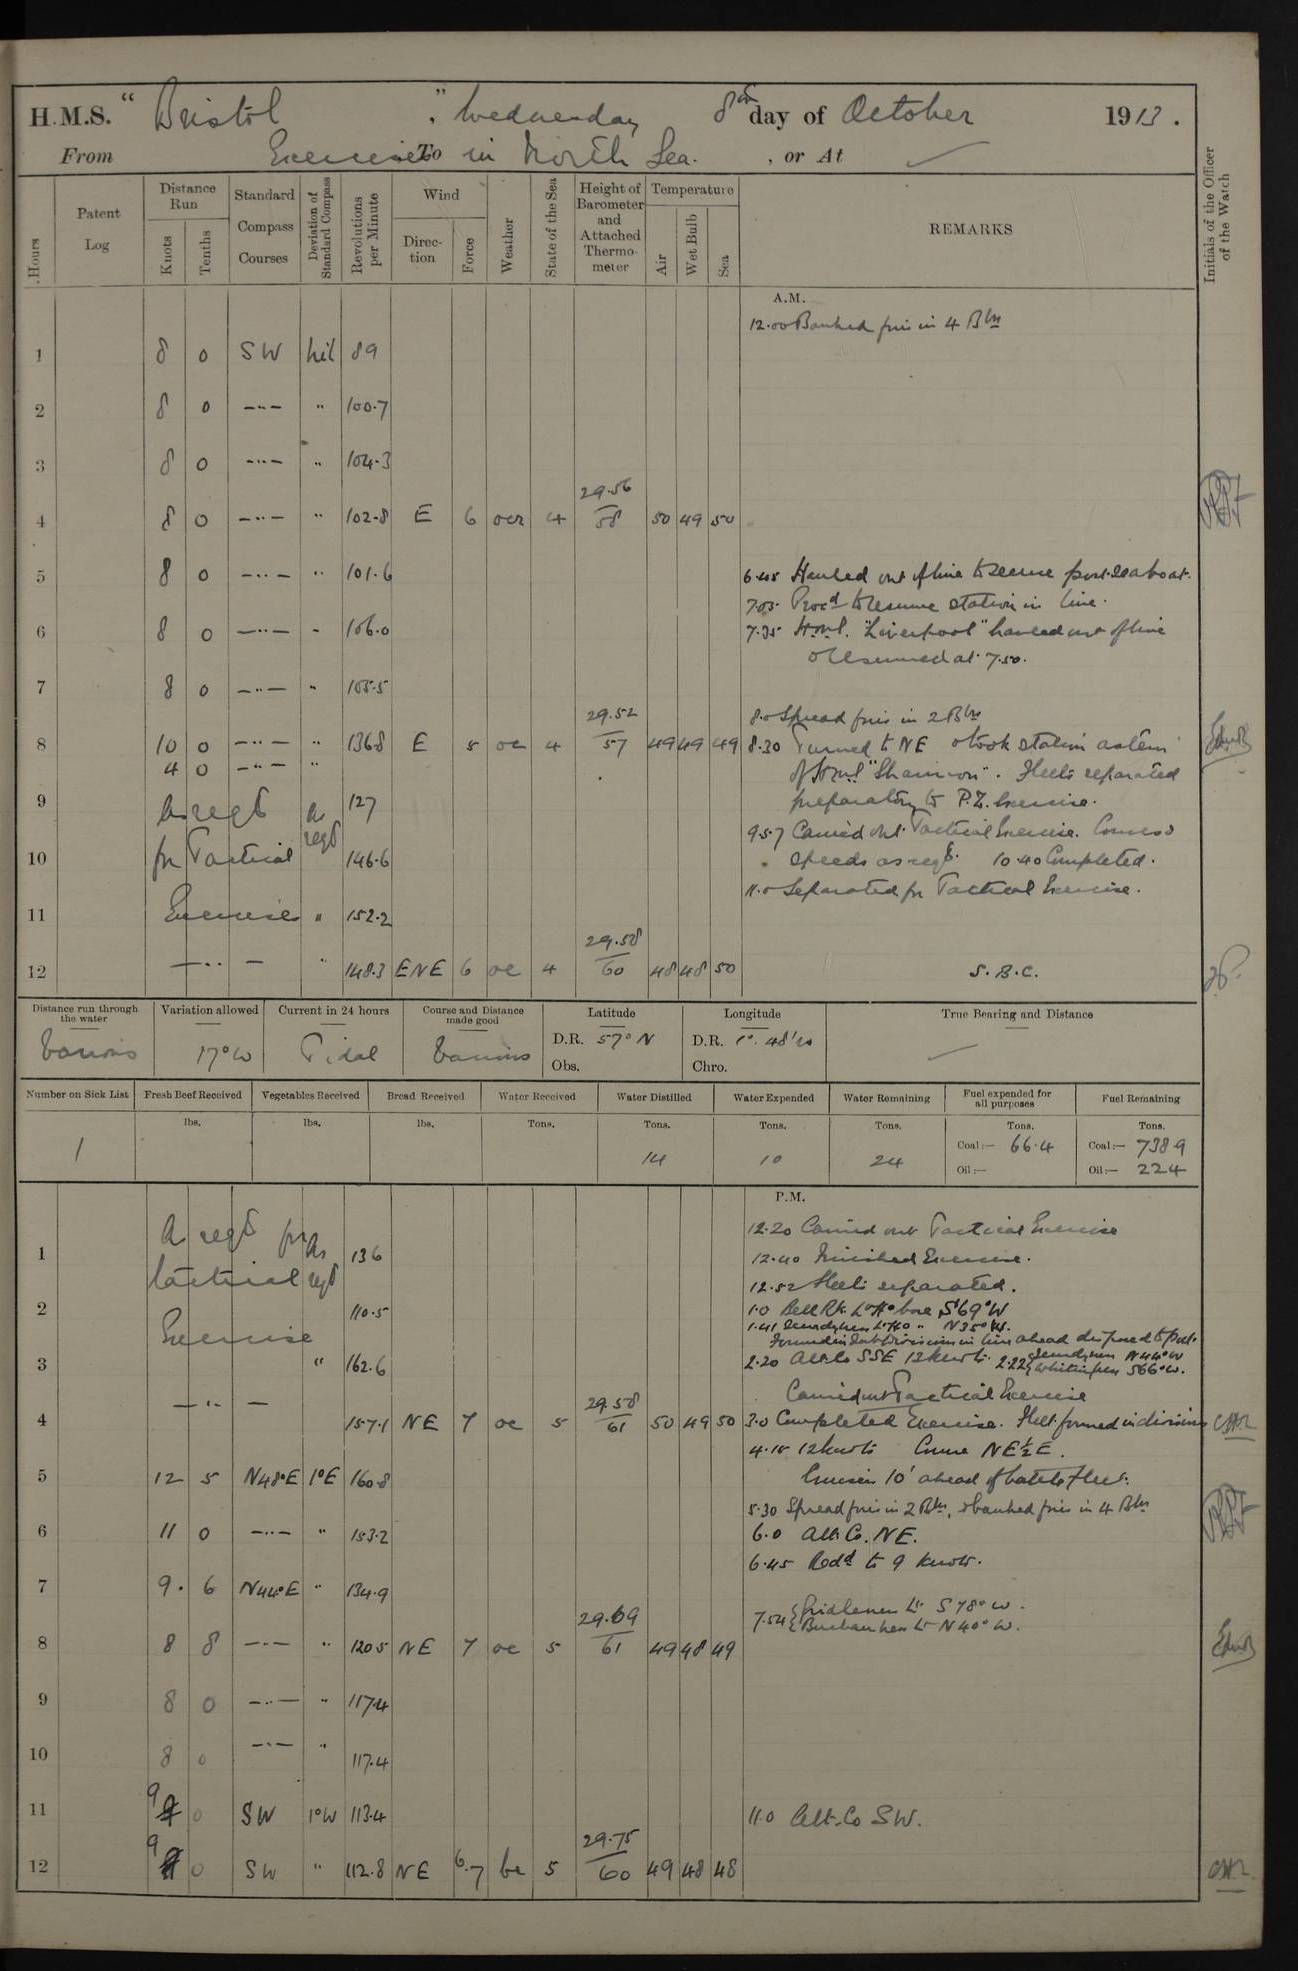 H.M.S. " Bristol ", Wednesday 8th day of October 1913.
From Exercises To in North Sea. , or At
Hours
Patent Log
Distance Run
Knots
Tenths
Standard Compass Courses
Deviation of Standard Compass
Revolutions per Minute
Wind
Direction
Force
Weather
State of the Sea
Height of Barometer and Attached Thermometer
Temperature
Air
Wet Bulb
Sea
REMARKS
Initials of the Officer of the Watch
A.M.
12.00 Banked fires in 4 Blrs
1 8 0 SW Nil 89
2 8 0 —"— " 100.7
3 8 0 —"— " 104.3
4 8 0 —"— " 102.8 E 6 ocr 4 29.56 58 50 49 50
5 8 0 —"— " 101.6
6.45 Hauled out of line to secure port seaboat.
7.05 Procd to resume station in line.
6 8 0 —"— " 106.0
7.35 H.M.S. "Liverpool" hauled out of line
& resumed at 7.50.
7 8 0 —"— " 105.5
8.0 Spread fires in 2 Blrs
8 10 0 —"— " 136.8 E 5 oc 4 29.52 57 49 49 49
8.30 Turned to NE & took station astern
4 0 —"— "
of H.M.S. "Shannon". Fleets separated
preparatory to P.Z. Exercise.
9 As reqd As reqd 127
9.57 Carried out Tactical Exercise. Courses &
10 for Tactical 146.6
speeds as reqd. 10.40 Completed.
11.0 Separated for Tactical Exercise.
11 Exercises " 152.2
12 —"— " 148.3 ENE 6 oc 4 29.58 60 48 48 50
S.B.C.
Distance run through the water
Various
Variation allowed
17°W
Current in 24 hours
Tidal
Course and Distance made good
Various
Latitude
D.R. 57° N
Obs.
Longitude
D.R. 1°. 48' W
Chro.
True Bearing and Distance
Number on Sick List
1
Fresh Beef Received
lbs.
Vegetables Received
lbs.
Bread Received
lbs.
Water Received
Tons.
Water Distilled
Tons.
14
Water Expended
Tons.
10
Water Remaining
Tons.
24
Fuel expended for all purposes
Tons.
Coal:— 66.4
Oil:—
Fuel Remaining
Tons.
Coal:— 738 9
Oil:— 224
P.M.
12.20 Carried out Tactical Exercise
1 As reqd for As 136
12.40 Finished Exercise.
tactical reqd
12.52 Fleets separated.
2 110.5
1.0 Bell Rk. Lt Ho bore S 69° W
Exercise
1.41 Lt Ho " N 35° W.
Formed in Subdivisions in line ahead disposed to port.
3 " 162.6
2.20 Alt. Co SSE 12 knots. 2.22 N 44° W
S 66° W.
Carried out Tactical Exercise
4 —"— 157.1 NE 7 oc 5 29.58 61 50 49 50
3.0 Completed Exercise. Fleet formed in divisions
4.15 12 knots Course NE½E.
5 12 5 N48°E 1°E 160.8
Cruisers 10' ahead of battle fleet.
5.30 Spread fires in 2 Blrs, & banked fires in 4 Blrs
6 11 0 —"— " 153.2
6.0 Alt. Co. NE.
6.45 Redd to 9 knots.
7 9. 6 N44°E " 134.9
7.54 Lt S 78° W.
Buchan Ness Lt N 40° W.
8 8 8 —"— " 120.5 NE 7 oc 5 29.69 61 49 48 49
9 8 0 —"— " 117.4
10 8 0 —"— " 117.4
11 9 0 SW 1°W 113.4
11.0 Alt. Co SW.
12 9 0 SW " 112.8 NE 6.7 bc 5 29.75 60 49 48 48